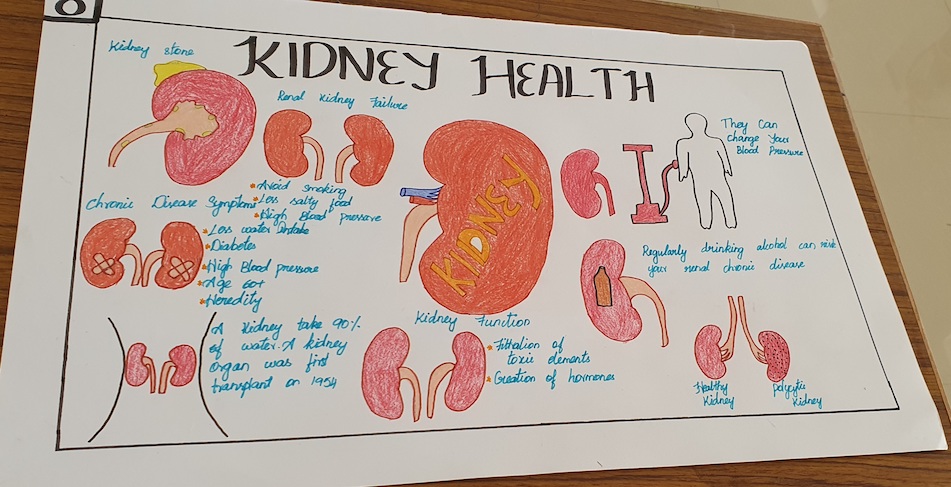 8
KIDNEY HEALTH
Kidney stone
Renal Kidney Failure
Avoid smoking
Less salty food
High Blood pressure
Chronic Disease Symptoms
Less water Intake
Diabetes
High Blood pressure
Age 60+
Heredity
A kidney take 90%
of water. A kidney
organ was first
transplant on 1954
KIDNEY
Kidney Function
Filtration of
toxic elements
Creation of hormones
They Can
Change Your
Blood Pressure
Regularly drinking alcohol can
your renal chronic disease
Healthy
Kidney
polycytic
Kidney